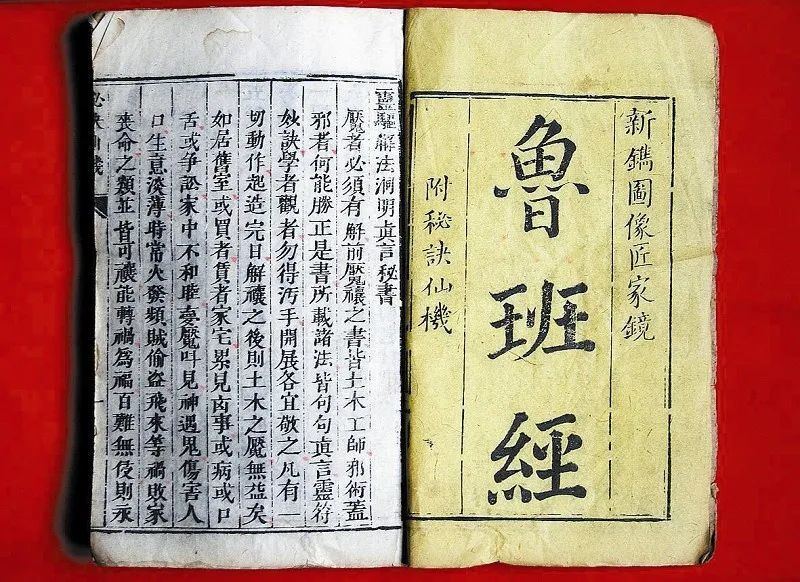 新鐫圖像匠家鏡
魯班經
附秘訣仙機
靈驅解法洞明眞言秘書
魘者必須有解前魘禳之書皆土木工師邪術蓋
邪者何能勝正是書所載諸法皆句句眞言靈符
妙訣學者觀者勿得汚手開展各宜敬之凡有一
切動作起造完日解禳之後則土木之魘無益矣
如居舊室或買者賃者家宅累見凶事或病或口
舌或爭訟家中不和睡臺魘叫見神遇鬼傷害人
口生意淡薄時常火發頻賊偷盜飛來等禍敗家
喪命之類並皆可禳能轉禍為福百難無侵則永